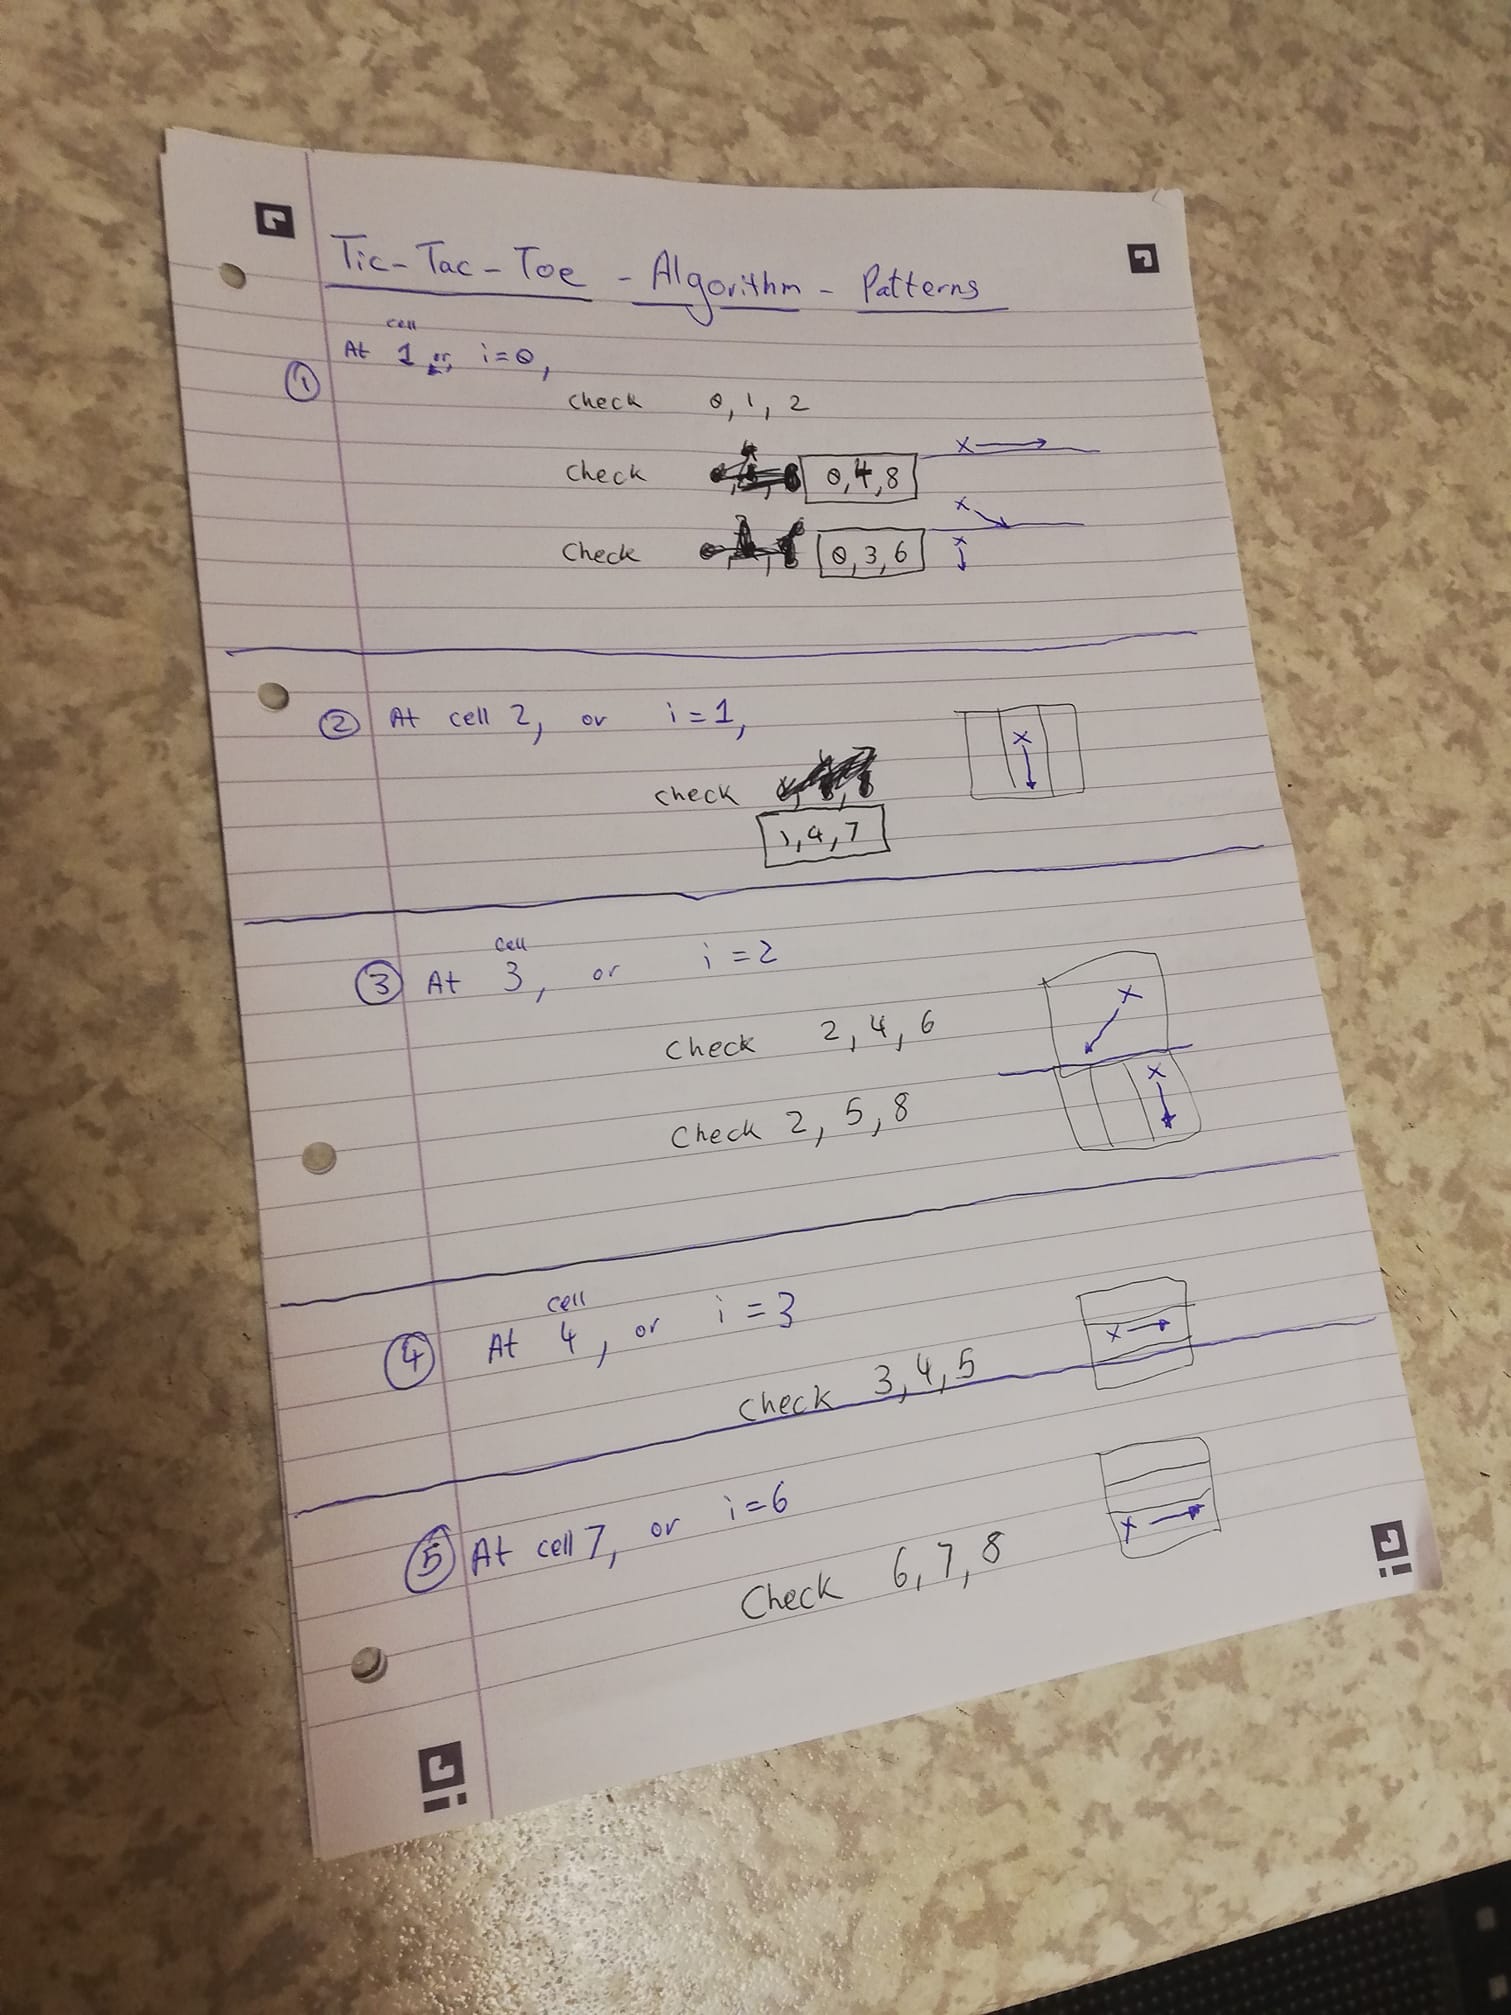 Tic-Tac-Toe - Algorithm - Patterns
cell
① At 1 or, i=0,
check 0, 1, 2
check 0,4,8
x
check 0,3,6
x
x
② At cell 2, or i=1,
x
check
1,4,7
cell
③ At 3, or i=2
x
check 2, 4, 6
x
check 2, 5, 8
cell
④ At 4, or i=3
x
check 3,4,5
⑤ At cell 7, or i=6
x
Check 6,7,8